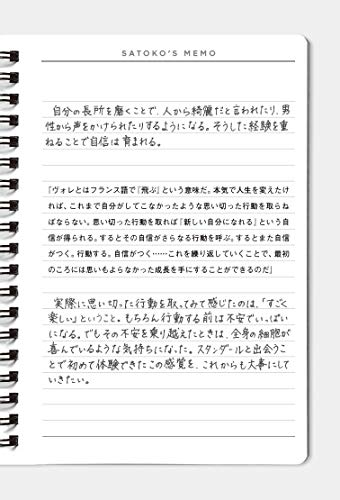 SATOKO'S MEMO
自分の長所を磨くことで、人から綺麗だと言われたり、男
性から声をかけられたりするようになる。そうした経験を重
ねることで自信は育まれる。
「ヴォレとはフランス語で『飛ぶ』という意味だ。本気で人生を変えたけ
れば、これまで自分がしてこなかったような思い切った行動を取らね
ばならない。思い切った行動を取れば『新しい自分になれる』という自
信が得られる。するとその自信がさらなる行動を呼ぶ。するとまた自信
がつく。行動する。自信がつく……これを繰り返していくことで、最初
のころには思いもよらなかった成長を手にすることができるのだ」
実際に思い切った行動を取ってみて感じたのは、「すごく
楽しい」ということ。もちろん行動する前は不安でいっぱい
になる。でもその不安を乗り越えたときは、全身の細胞が
喜んでいるような気持ちになった。スタンダールと出会うこ
とで初めて体験できたこの感覚を、これからも大事にして
いきたい。